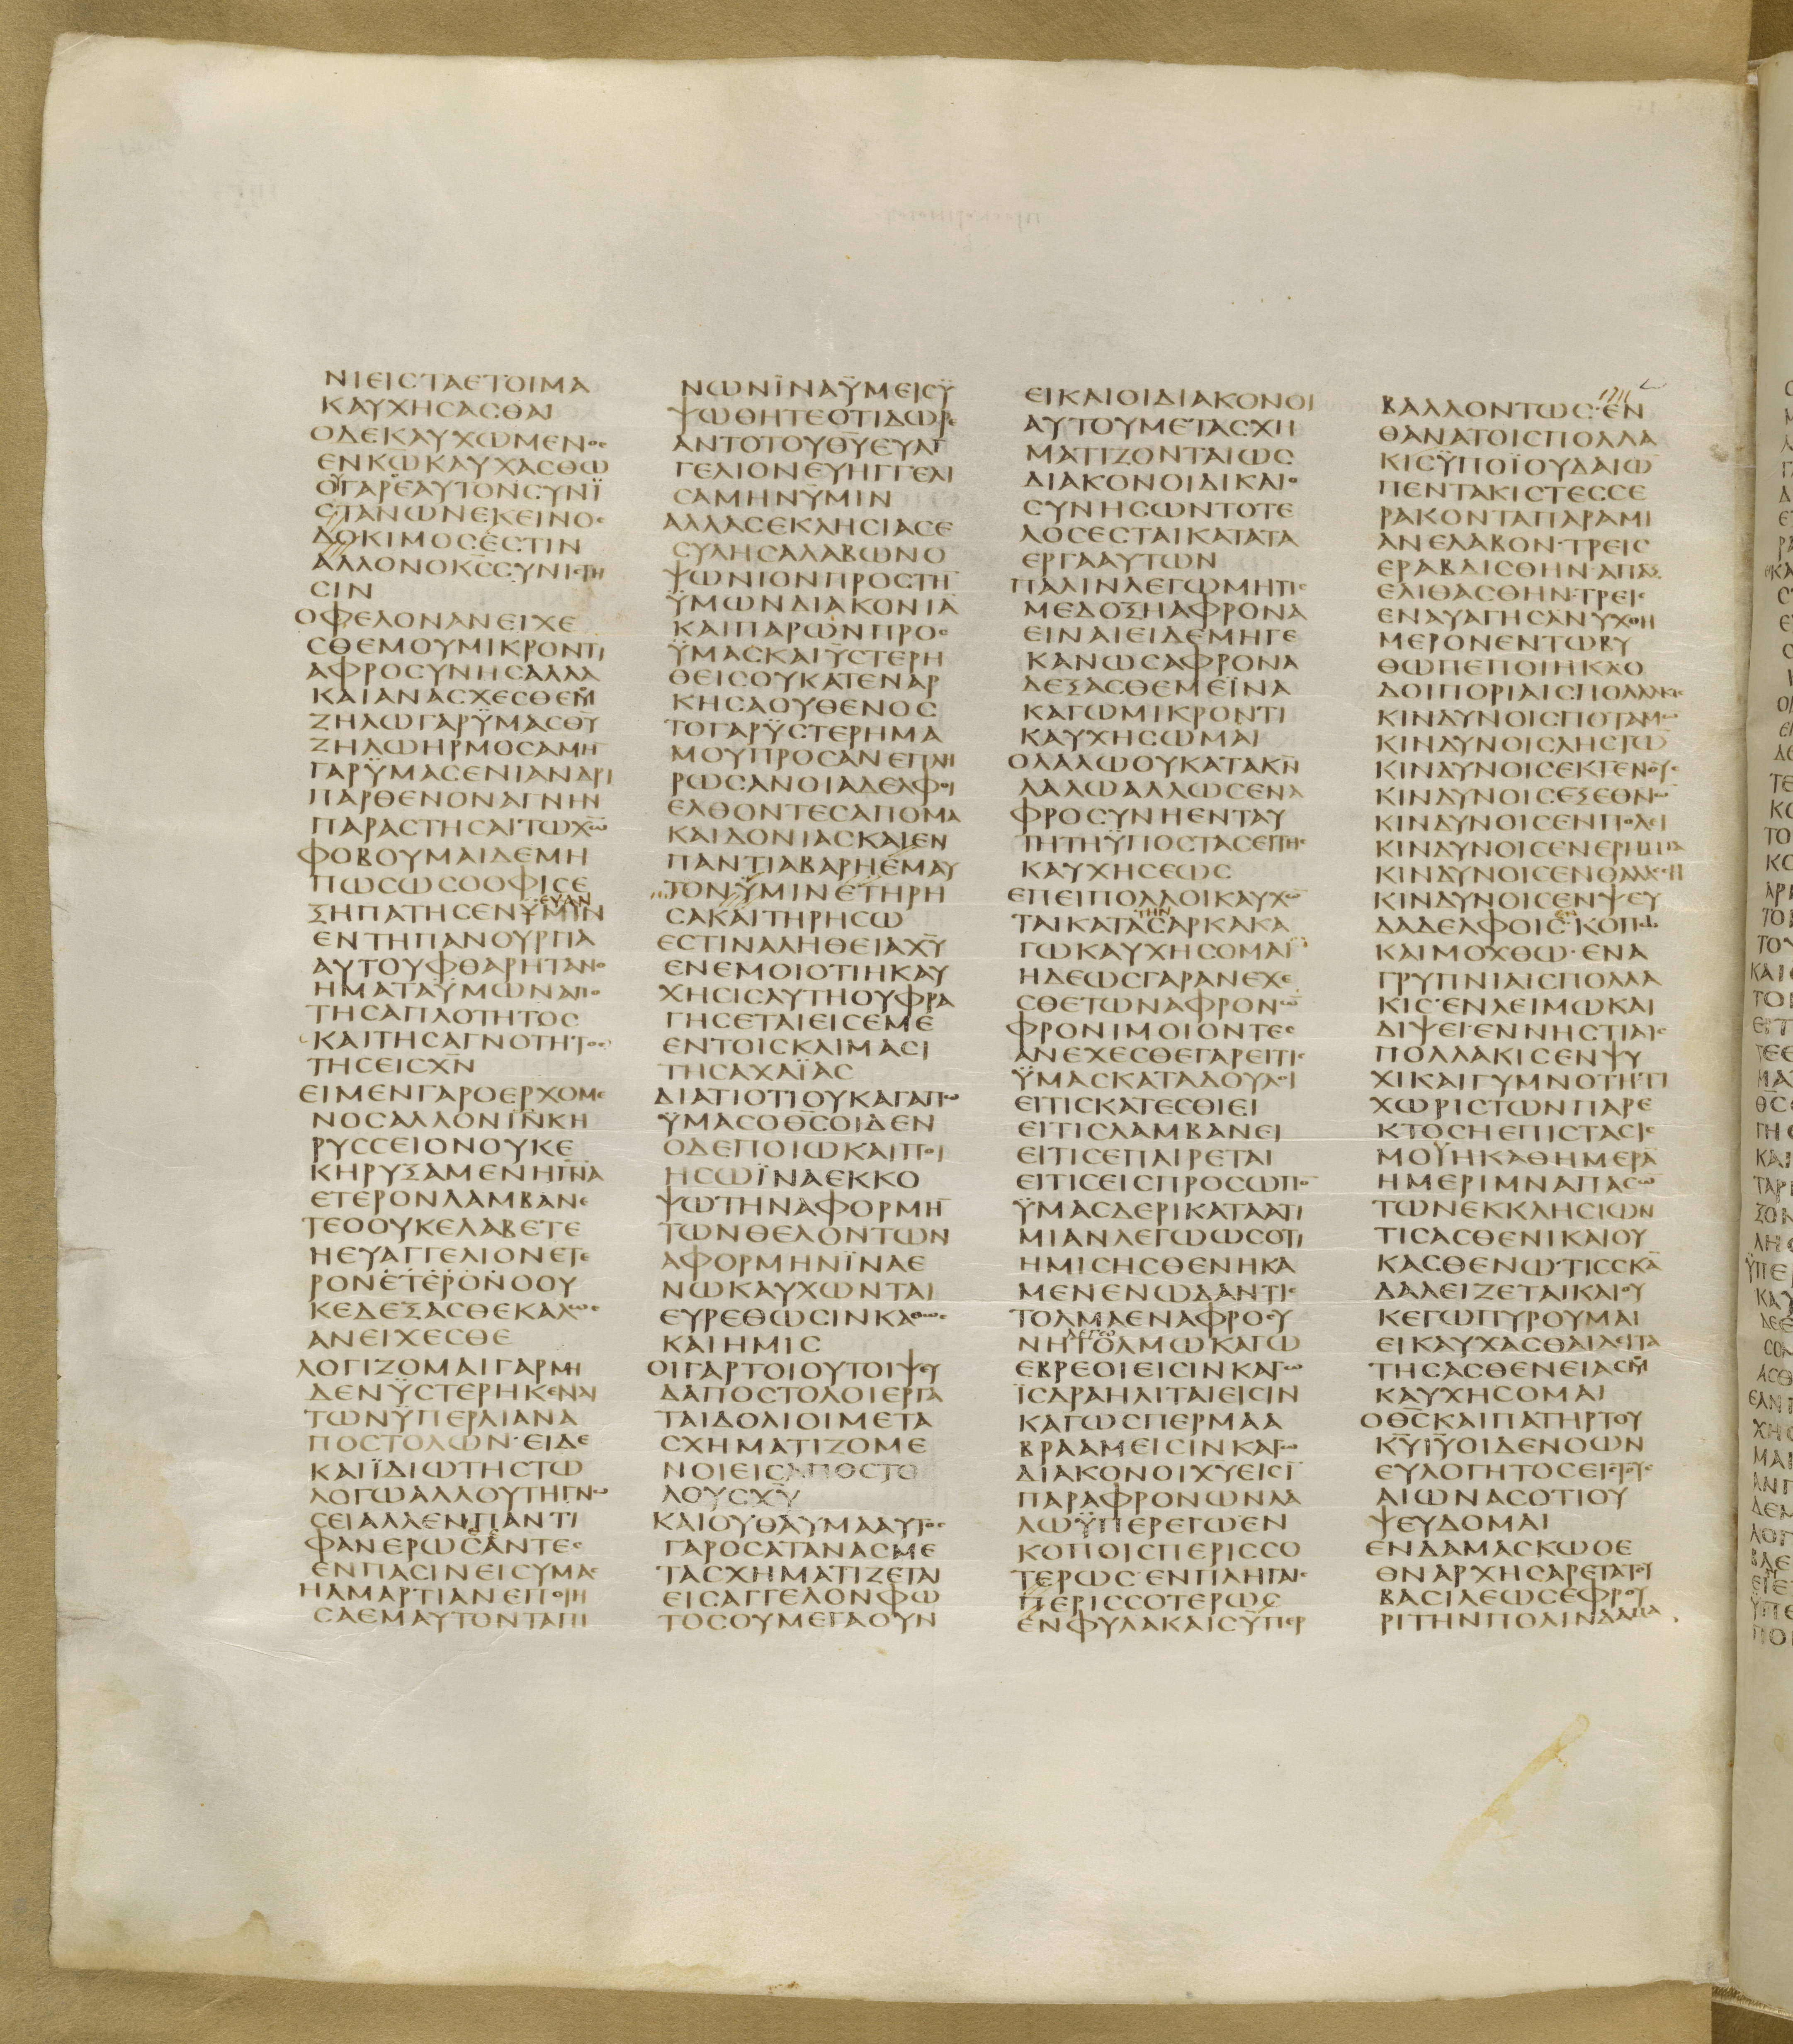 ΝΙΕΙϹΤΑΕΤΟΙΜΑ
ΚΑΥΧΗϹΑϹΘΑΙ
ΟΔΕΚΑΥΧΩΜΕΝΟϹ
ΕΝΚ̅Ω̅ΚΑΥΧΑϹΘΩ
ΟΥΓΑΡΕΑΥΤΟΝϹΥΝΪ
ϹΤΑΝΩΝΕΚΕΙΝΟϹ
ΔΟΚΙΜΟϹΕϹΤΙΝ
ΑΛΛΟΝΟΚ̅Ϲ̅ϹΥΝΙϹΤΗ
ϹΙΝ
ΟΦΕΛΟΝΑΝΕΙΧΕ
ϹΘΕΜΟΥΜΙΚΡΟΝΤΙ
ΑΦΡΟϹΥΝΗϹΑΛΛΑ
ΚΑΙΑΝΑϹΧΕϹΘΕΜ̅
ΖΗΛΩΓΑΡΫΜΑϹΘ̅Υ̅
ΖΗΛΩΗΡΜΟϹΑΜΗ̅
ΓΑΡΫΜΑϹΕΝΙΑΝΔΡΙ
ΠΑΡΘΕΝΟΝΑΓΝΗΝ
ΠΑΡΑϹΤΗϹΑΙΤΩΧ̅Ω̅
ΦΟΒΟΥΜΑΙΔΕΜΗ
ΠΩϹΩϹΟΟΦΙϹΕ
ΕΥΑΝ
ΞΗΠΑΤΗϹΕΝΫΜΙΝ
ΕΝΤΗΠΑΝΟΥΡΓΙΑ
ΑΥΤΟΥΦΘΑΡΗΤΑΝΟ
ΗΜΑΤΑΫΜΩΝΑΠΟ
ΤΗϹΑΠΛΟΤΗΤΟϹ
ΚΑΙΤΗϹΑΓΝΟΤΗΤΟϹ
ΤΗϹΕΙϹΧ̅Ν̅
ΕΙΜΕΝΓΑΡΟΕΡΧΟΜΕ
ΝΟϹΑΛΛΟΝΙ̅Ν̅ΚΗ
ΡΥϹϹΕΙΟΝΟΥΚΕ
ΚΗΡΥΞΑΜΕΝΗΠΝ̅Α̅
ΕΤΕΡΟΝΛΑΜΒΑΝΕ
ΤΕΟΟΥΚΕΛΑΒΕΤΕ
ΗΕΥΑΓΓΕΛΙΟΝΕΤΕ
ΡΟΝΕΤΕΡΟΝΟΟΥ
ΚΕΔΕΞΑϹΘΕΚΑΛΩϹ
ΑΝΕΙΧΕϹΘΕ
ΛΟΓΙΖΟΜΑΙΓΑΡΜΗ
ΔΕΝΫϹΤΕΡΗΚΕΝΑΙ
ΤΩΝΫΠΕΡΛΙΑΝΑ
ΠΟϹΤΟΛΩΝ·ΕΙΔΕ
ΚΑΙΪΔΙΩΤΗϹΤΩ
ΛΟΓΩΑΛΛΟΥΤΗΓΝΩ
ϹΕΙΑΛΛΕΝΠΑΝΤΙ
ΦΑΝΕΡΩϹΑΝΤΕϹ
ΕΝΠΑϹΙΝΕΙϹΥΜΑϹ
ΗΑΜΑΡΤΙΑΝΕΠΟΙΗ
ϹΑΕΜΑΥΤΟΝΤΑΠΙ
ΝΩΝΪΝΑΫΜΕΙϹΫ
ΨΩΘΗΤΕΟΤΙΔΩΡΕ
ΑΝΤΟΤΟΥΘ̅Υ̅ΕΥΑΓ
ΓΕΛΙΟΝΕΥΗΓΓΕΛΙ
ϹΑΜΗΝΫΜΙΝ
ΑΛΛΑϹΕΚΛΗϹΙΑϹΕ
ϹΥΛΗϹΑΛΑΒΩΝΟ
ΨΩΝΙΟΝΠΡΟϹΤΗ̅
ΫΜΩΝΔΙΑΚΟΝΙΑ̅
ΚΑΙΠΑΡΩΝΠΡΟϹ
ΫΜΑϹΚΑΙΫϹΤΕΡΗ
ΘΕΙϹΟΥΚΑΤΕΝΑΡ
ΚΗϹΑΟΥΘΕΝΟϹ
ΤΟΓΑΡΫϹΤΕΡΗΜΑ
ΜΟΥΠΡΟϹΑΝΕΠΛΗ
ΡΩϹΑΝΟΙΑΔΕΛΦΟΙ
ΕΛΘΟΝΤΕϹΑΠΟΜΑ
ΚΑΙΔΟΝΙΑϹΚΑΙΕΝ
ΠΑΝΤΙΑΒΑΡΗΕΜΑΥ
ΤΟΝΫΜΙΝΕΤΗΡΗ
ϹΑΚΑΙΤΗΡΗϹΩ
ΕϹΤΙΝΑΛΗΘΕΙΑΧ̅Υ̅
ΕΝΕΜΟΙΟΤΙΗΚΑΥ
ΧΗϹΙϹΑΥΤΗΟΥΦΡΑ
ΓΗϹΕΤΑΙΕΙϹΕΜΕ
ΕΝΤΟΙϹΚΛΙΜΑϹΙ
ΤΗϹΑΧΑΪΑϹ
ΔΙΑΤΙΟΤΙΟΥΚΑΓΑΠΩ
ΫΜΑϹΟΘ̅Ϲ̅ΟΙΔΕΝ
ΟΔΕΠΟΙΩΚΑΙΠΟΙ
ΗϹΩΪΝΑΕΚΚΟ
ΨΩΤΗΝΑΦΟΡΜΗ̅
ΤΩΝΘΕΛΟΝΤΩΝ
ΑΦΟΡΜΗΝΪΝΑΕ
ΝΩΚΑΥΧΩΝΤΑΙ
ΕΥΡΕΘΩϹΙΝΚΑΘΩϹ
ΚΑΙΗΜΙϹ
ΟΙΓΑΡΤΟΙΟΥΤΟΙΨΕΥ
ΔΑΠΟϹΤΟΛΟΙΕΡΓΑ
ΤΑΙΔΟΛΙΟΙΜΕΤΑ
ϹΧΗΜΑΤΙΖΟΜΕ
ΝΟΙΕΙϹΑΠΟϹΤΟ
ΛΟΥϹΧ̅Υ̅
ΚΑΙΟΥΘΑΥΜΑΑΥΤΟϹ
ΓΑΡΟϹΑΤΑΝΑϹΜΕ
ΤΑϹΧΗΜΑΤΙΖΕΤΑΙ
ΕΙϹΑΓΓΕΛΟΝΦΩ
ΤΟϹΟΥΜΕΓΑΟΥΝ
ΕΙΚΑΙΟΙΔΙΑΚΟΝΟΙ
ΑΥΤΟΥΜΕΤΑϹΧΗ
ΜΑΤΙΖΟΝΤΑΙΩϹ
ΔΙΑΚΟΝΟΙΔΙΚΑΙΟ
ϹΥΝΗϹΩΝΤΟΤΕ
ΛΟϹΕϹΤΑΙΚΑΤΑΤΑ
ΕΡΓΑΑΥΤΩΝ
ΠΑΛΙΝΛΕΓΩΜΗΤΙϹ
ΜΕΔΟΞΗΑΦΡΟΝΑ
ΕΙΝΑΙΕΙΔΕΜΗΓΕ
ΚΑΝΩϹΑΦΡΟΝΑ
ΔΕΞΑϹΘΕΜΕΪΝΑ
ΚΑΓΩΜΙΚΡΟΝΤΙ
ΚΑΥΧΗϹΩΜΑΙ
ΟΛΑΛΩΟΥΚΑΤΑΚ̅Ν̅
ΛΑΛΩΑΛΛΩϹΕΝΑ
ΦΡΟϹΥΝΗΕΝΤΑΥ
ΤΗΤΗΫΠΟϹΤΑϹΕΙΤΗϹ
ΚΑΥΧΗϹΕΩϹ
ΕΠΕΙΠΟΛΛΟΙΚΑΥΧΩ̅
ΤΗΝ
ΤΑΙΚΑΤΑϹΑΡΚΑΚΑ
ΓΩΚΑΥΧΗϹΟΜΑΙ
ΗΔΕΩϹΓΑΡΑΝΕΧΕ
ϹΘΕΤΩΝΑΦΡΟΝΩ̅
ΦΡΟΝΙΜΟΙΟΝΤΕϹ
ΑΝΕΧΕϹΘΕΓΑΡΕΙΤΙϹ
ΫΜΑϹΚΑΤΑΔΟΥΛΟΙ
ΕΙΤΙϹΚΑΤΕϹΘΙΕΙ
ΕΙΤΙϹΛΑΜΒΑΝΕΙ
ΕΙΤΙϹΕΠΑΙΡΕΤΑΙ
ΕΙΤΙϹΕΙϹΠΡΟϹΩΠΟ̅
ΫΜΑϹΔΕΡΙΚΑΤΑΑΤΙ
ΜΙΑΝΛΕΓΩΩϹΟΤΙ
ΗΜΙϹΗϹΘΕΝΗΚΑ
ΜΕΝΕΝΩΔΑΝΤΙϹ
ΤΟΛΜΑΕΝΑΦΡΟϹΥ
ΛΕΓΩ
ΝΗΤΟΛΜΩΚΑΓΩ
ΕΒΡΕΟΙΕΙϹΙΝΚΑΓΩ
ΪϹΔΡΑΗΛΙΤΑΙΕΙϹΙΝ
ΚΑΓΩϹΠΕΡΜΑΑ
ΒΡΑΑΜΕΙϹΙΝΚΑΓΩ
ΔΙΑΚΟΝΟΙΧΥΕΙϹΙ̅
ΠΑΡΑΦΡΟΝΩΝΛΑ
ΛΩΫΠΕΡΕΓΩΕΝ
ΚΟΠΟΙϹΠΕΡΙϹϹΟ
ΤΕΡΩϹ·ΕΝΠΛΗΓΑΙϹ
ΠΕΡΙϹϹΟΤΕΡΩϹ
ΕΝΦΥΛΑΚΑΙϹΫΠΕΡ
ΒΑΛΛΟΝΤΩϹ·ΕΝ
ΘΑΝΑΤΟΙϹΠΟΛΛΑ
ΚΙϹΫΠΟΪΟΥΔΑΙΩ̅
ΠΕΝΤΑΚΙϹΤΕϹϹΕ
ΡΑΚΟΝΤΑΠΑΡΑΜΙ
ΑΝΕΛΑΒΟΝ·ΤΡΕΙϹ
ΕΡΑΒΔΙϹΘΗΝ·ΑΠΑΞ
ΕΛΙΘΑϹΘΗΝ·ΤΡΕΙϹ
ΕΝΑΥΑΓΗϹΑΝΥΧΘΗ
ΜΕΡΟΝΕΝΤΩΒΥ
ΘΩΠΕΠΟΙΗΚΑΟ
ΔΟΙΠΟΡΙΑΙϹΠΟΛΛΑΚΙϹ
ΚΙΝΔΥΝΟΙϹΠΟΤΑΜΩ̅
ΚΙΝΔΥΝΟΙϹΛΗϹΤΩ̅
ΚΙΝΔΥΝΟΙϹΕΚΓΕΝΟΥϹ
ΚΙΝΔΥΝΟΙϹΕΞΕΘΝΩ̅
ΚΙΝΔΥΝΟΙϹΕΝΠΟΛΕΙ
ΚΙΝΔΥΝΟΙϹΕΝΕΡΗΜΙΑ
ΚΙΝΔΥΝΟΙϹΕΝΘΑΛΑϹϹΗ
ΚΙΝΔΥΝΟΙϹΕΝΨΕΥ
ΕΝ
ΔΑΔΕΛΦΟΙϹ·ΚΟΠΩ
ΚΑΙΜΟΧΘΩ·ΕΝΑ
ΓΡΥΠΝΙΑΙϹΠΟΛΛΑ
ΚΙϹ·ΕΝΛΕΙΜΩΚΑΙ
ΔΙΨΕΙ·ΕΝΝΗϹΤΙΑΙϹ
ΠΟΛΛΑΚΙϹΕΝΨΥ
ΧΙΚΑΙΓΥΜΝΟΤΗΤΙ
ΧΩΡΙϹΤΩΝΠΑΡΕ
ΚΤΟϹΗΕΠΙϹΤΑϹΙϹ
ΜΟΥΗΚΑΘΗΜΕΡΑ̅
ΗΜΕΡΙΜΝΑΠΑϹΩ̅
ΤΩΝΕΚΚΛΗϹΙΩΝ
ΤΙϹΑϹΘΕΝΙΚΑΙΟΥ
ΚΑϹΘΕΝΩ·ΤΙϹϹΚΑ̅
ΔΑΛΕΙΖΕΤΑΙΚΑΙΟΥ
ΚΕΓΩΠΥΡΟΥΜΑΙ
ΕΙΚΑΥΧΑϹΘΑΙΔΕΙΤΑ
ΤΗϹΑϹΘΕΝΕΙΑϹΜ̅
ΚΑΥΧΗϹΟΜΑΙ
ΟΘ̅Ϲ̅ΚΑΙΠΑΤΗΡΤΟΥ
Κ̅Υ̅Ι̅Υ̅ΟΙΔΕΝΟΩΝ
ΕΥΛΟΓΗΤΟϹΕΙϹΤΟΥϹ
ΑΙΩΝΑϹΟΤΙΟΥ
ΨΕΥΔΟΜΑΙ
ΕΝΔΑΜΑϹΚΩΟΕ
ΘΝΑΡΧΗϹΑΡΕΤΑΤΟΥ
ΒΑϹΙΛΕΩϹΕΦΡΟΥ
ΡΙΤΗΝΠΟΛΙΝΔΑΜΑ